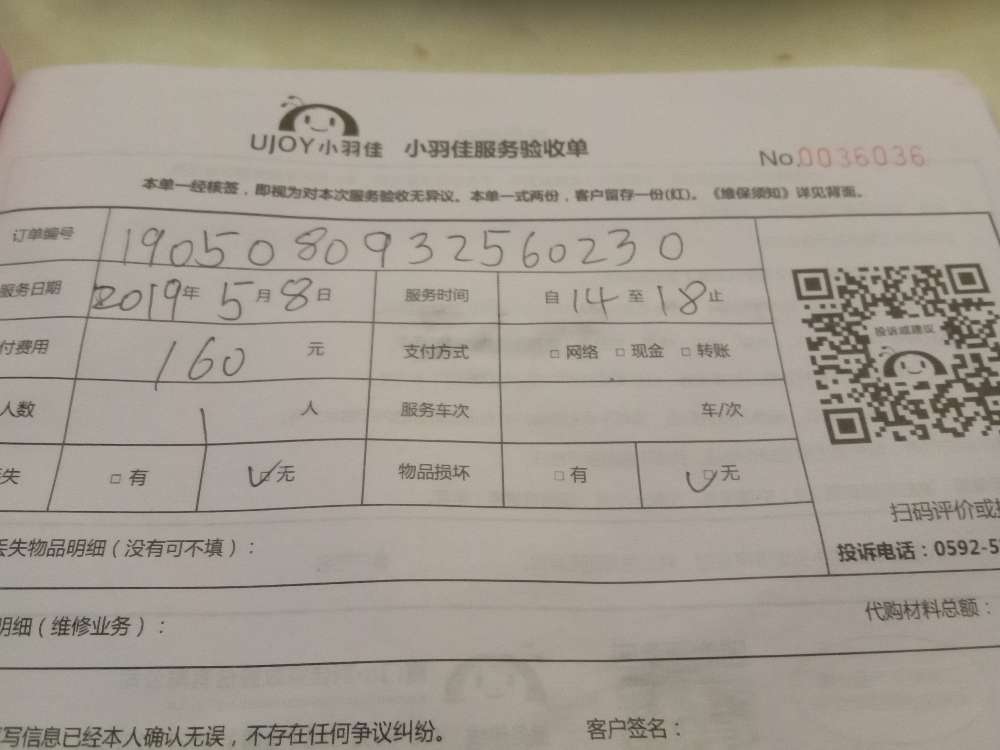 UJOY小羽佳 小羽佳服务验收单
No.0036036
本单一经核签，即视为对本次服务验收无异议。本单一式两份，客户留存一份(红)。《维保须知》详见背面。
订单编号 1905080932560230
服务日期 2019年 5月 8日 服务时间 自 14 至 18 止
付费用 160 元 支付方式 □ 网络 □ 现金 □ 转账
投诉或建议
人数 1 人 服务车次 车/次
失 □ 有 ☑ 无 物品损坏 □ 有 ☑ 无
扫码评价或
丢失物品明细（没有可不填）：
投诉电话：0592-5
明细（维修业务）：
代购材料总额：
写信息已经本人确认无误，不存在任何争议纠纷。 客户签名：